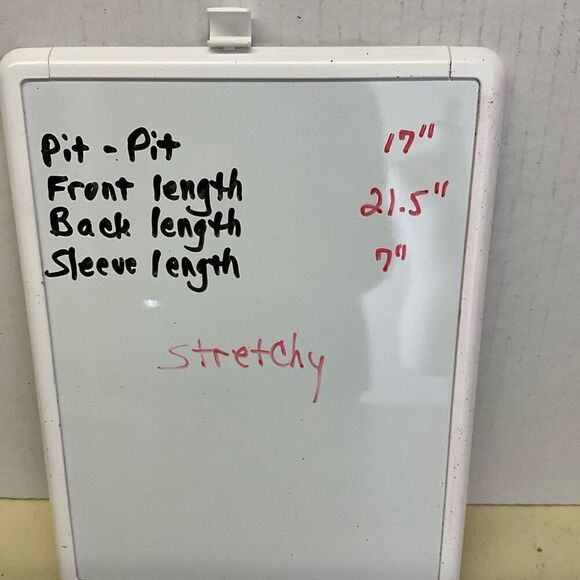 Pit - Pit 17"
Front length 21.5"
Back length
Sleeve length 7"
stretchy